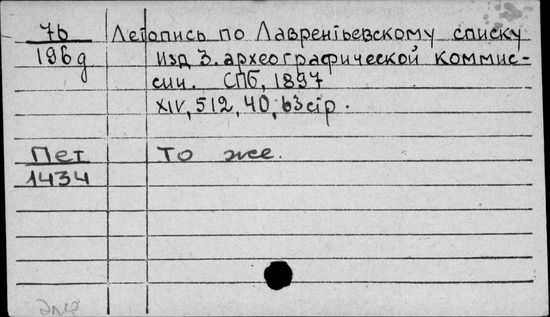 7б Летопись по Лаврентьевскому списку
196д изд 3. археографической коммис-
сии. СПб, 1897
XIV, 512, 40, 63 стр.
Пет То же.
1434